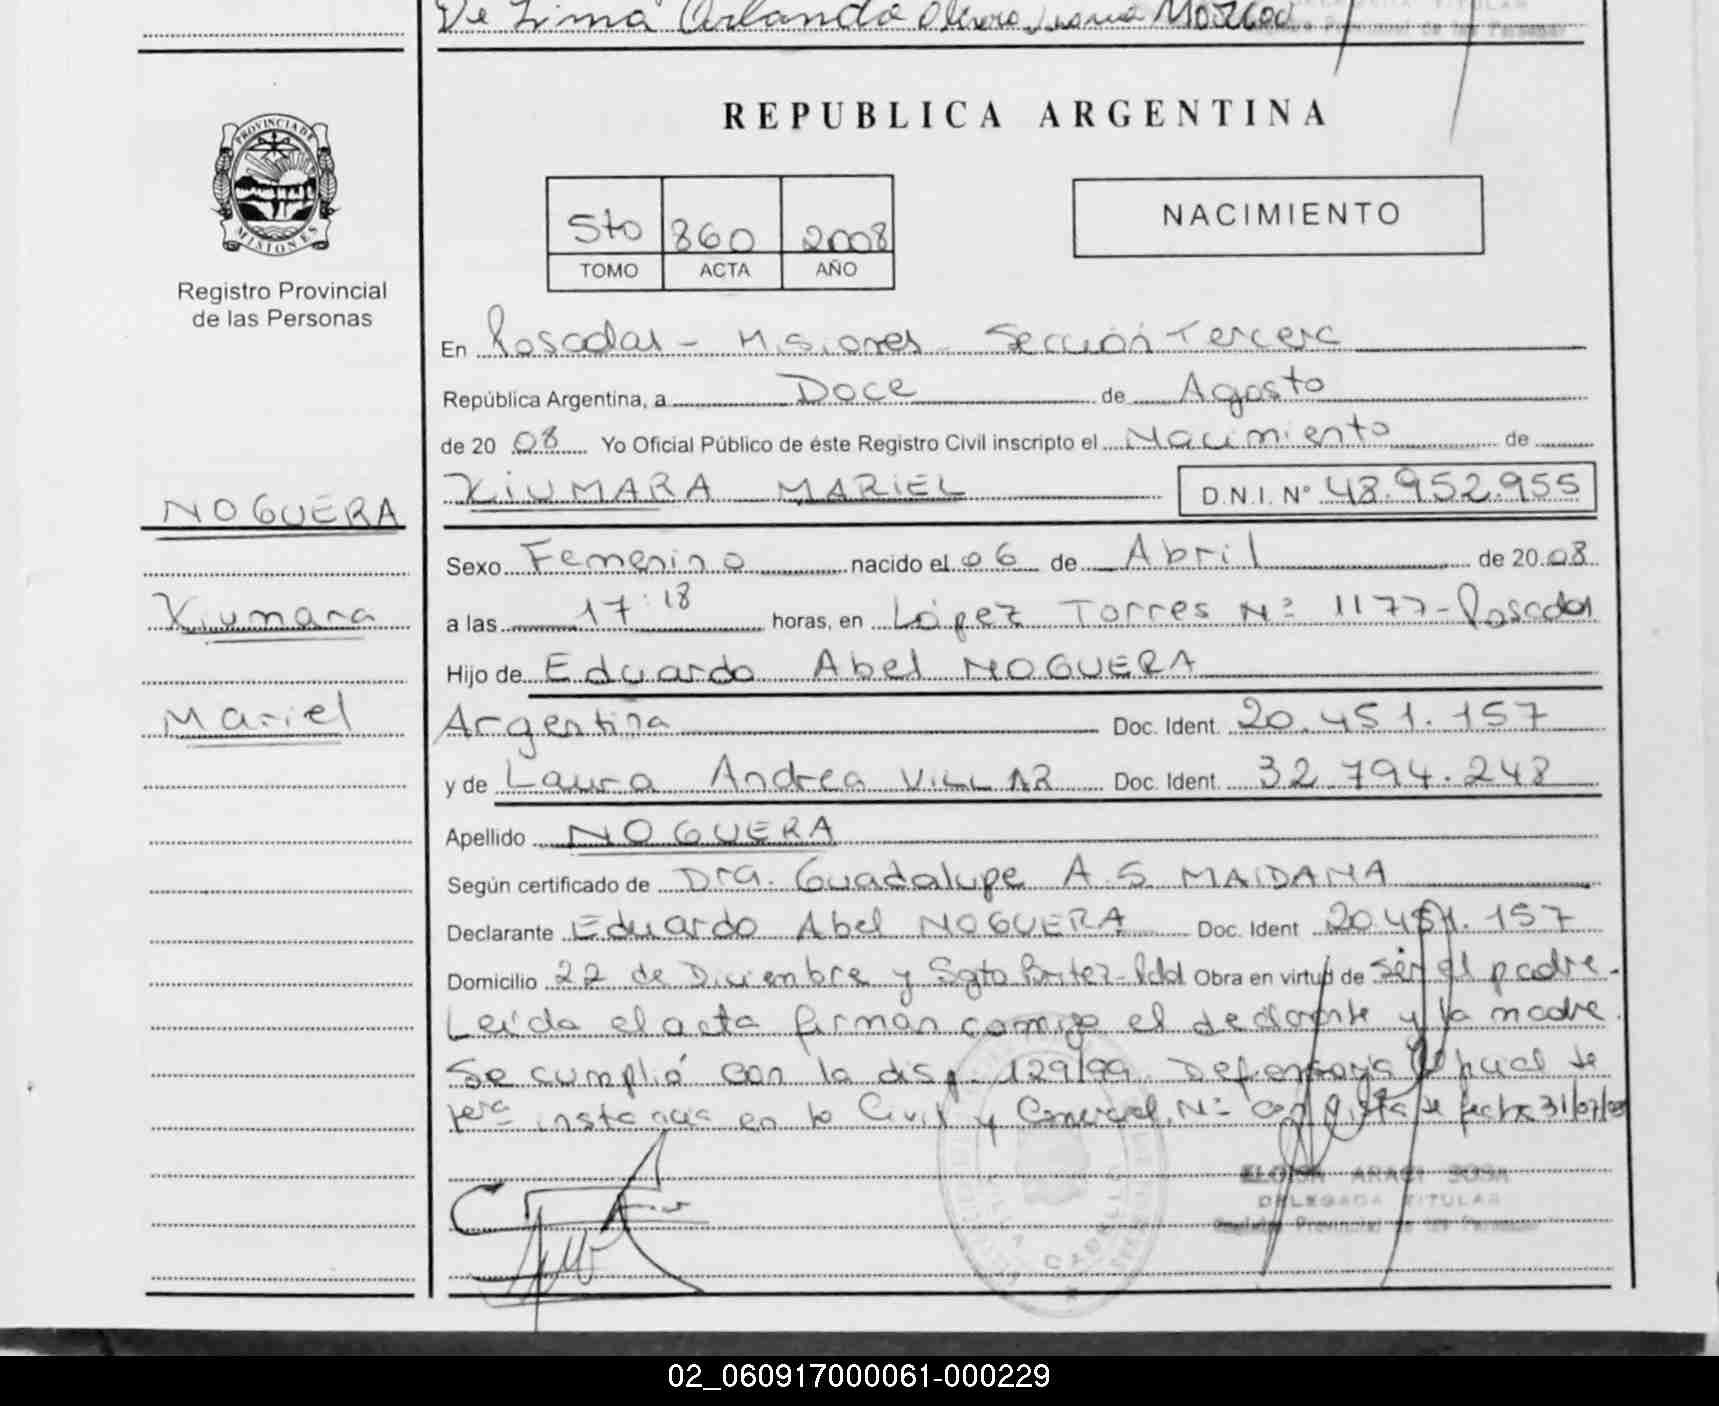 De Lima Orlando
REPUBLICA ARGENTINA
PROVINCIA DE
MISIONES
Registro Provincial
de las Personas
5to 860 2008
TOMO ACTA AÑO
NACIMIENTO
En Posadas - Misiones - Sección Tercera
República Argentina, a Doce de Agosto
de 20 08 Yo Oficial Público de éste Registro Civil inscripto el Nacimiento de
XIUMARA MARIEL D.N.I. N° 48.952.955
NOGUERA
Xiumara
Mariel
Sexo Femenino nacido el 06 de Abril de 20 08
a las 17:18 horas, en López Torres N° 1177 - Posadas
Hijo de Eduardo Abel NOGUERA
Argentina Doc. Ident. 20.451.157
y de Laura Andrea VILLAR Doc. Ident. 32.794.248
Apellido NOGUERA
Según certificado de Dra. Guadalupe A. S. MAIDANA
Declarante Eduardo Abel NOGUERA Doc. Ident 20.451.157
Domicilio 22 de Diciembre y Sgto Britez - Pdd Obra en virtud de ser el padre.
Leída el acta firman conmigo el declarante y la madre.
Se cumplió con la disp. 129/99. Defensoría Oficial de
1era instancia en lo Civil y Comercial N° de fecha 31/07/08
ELOISA ARACI SOSA
DELEGADA TITULAR
Registro Provincial de las Personas
02_060917000061-000229